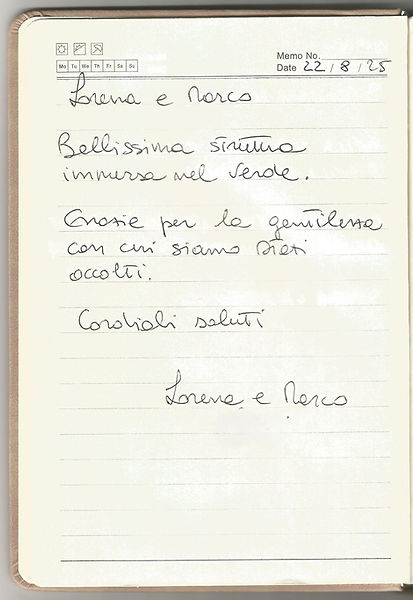 Memo No.
Mo Tu We Th Fr Sa Su
Date 22 / 8 / 25
Lorena e Marco
Bellissima struttura
immersa nel verde.
Grazie per la gentilezza
con cui siamo stati
accolti.
Cordiali saluti
Lorena e Marco